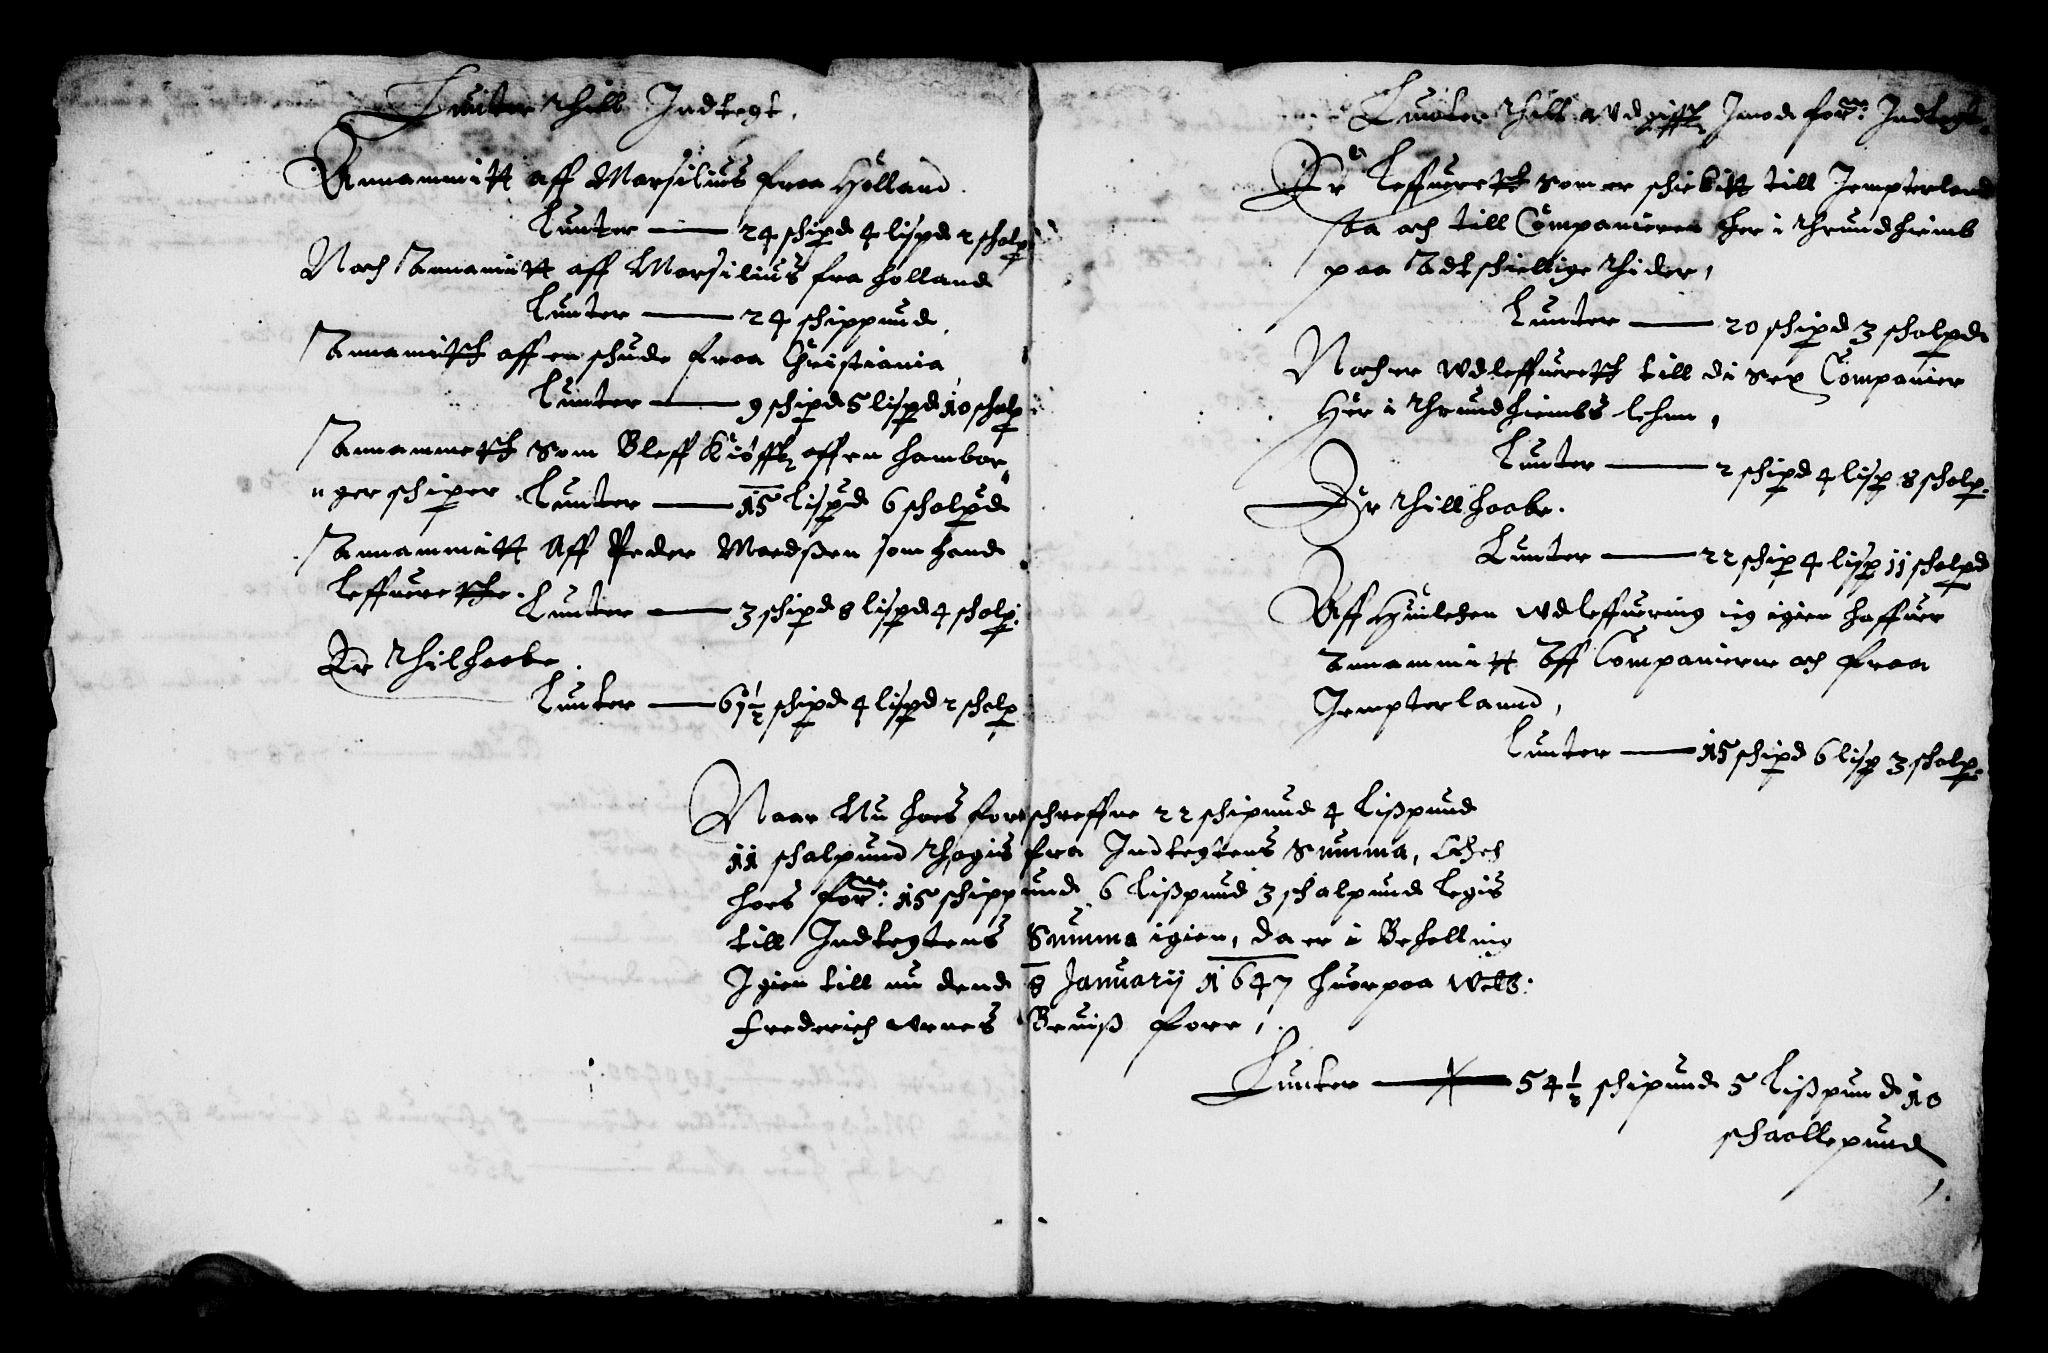 Lunter thill Indtegt.
Annammitt aff Marsilius fraa Holland
Lunter — 24 schipd 4 lispd 2 scholp
Noch Annamitt aff Marsilius fra holland
Lunter — 24 schippund.
Annamitth aff en schude fraa Christiania
Lunter — 9 schipd 5 lispd 10 scholp
Annammetth Som Bleff Kiöfft aff en hambor„
„ger schiper. Lunter — 15 lispd 6 scholpd
Annammitt Aff Peder Madsen som hand
leffueretthe. Lunter — 3 schipd 8 lispd 4 scholp:
Er thilhaabe.
Lunter — 61½ schipd 4 lispd 2 scholp
Lunter thill Udgifft Imod forne: Indtegt.
Er Leffueretth Som er schickitt till Jempterland
saa och till Companierne her i Thrundhiemb
paa Adtschiellige thider,
Lunter — 20 schipd 3 scholpd
Noch er Udleffueretth till di Sex Companier
Her i Thrundhiembs lehn,
Lunter — 2 schipd 4 lisp 8 scholp.
Er thill haabe.
Lunter — 22 schip 4 lisp 11 scholpd
Aff Huilchen Udleffuering ieg igien haffuer
Annammitt Aff Companierne och fraa
Jempterlannd,
Lunter — 15 schipd 6 lisp 3 scholp.
Naar Nu hoes forschreffne 22 schipund 4 Lißpund
11 schalpund thagis fra Indtegtens Summa, Och
hoes forne: 15 schippund 6 Lißpund 3 schalpund legis
till Indtegtens Summa igien, da er i Behollning
Igien till nu dend 8 Januarij 1647 huorpaa Welb:
Frederich Urnes Beuiß foer,
Lunter — 54½ schipund 5 Lißpund 10
schaallepund